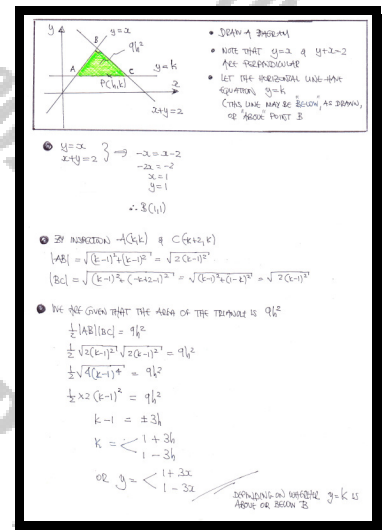 y
y=x
B
9h²
A
C
y=k
P(h,k)
x
x+y=2
• DRAW A DIAGRAM
• NOTE THAT y=x & y+x=2
ARE PERPENDICULAR
• LET THE HORIZONTAL LINE HAVE
EQUATION y=k
(THIS LINE MAY BE "BELOW", AS DRAWN,
OR "ABOVE" POINT B
y=x
x+y=2 } ⇒ -x=x-2
-2x=-2
x=1
y=1
∴ B(1,1)
BY INSPECTION A(k,k) & C(-k+2,k)
|AB| = √((k-1)²+(k-1)²) = √(2(k-1)²)
|BC| = √((k-1)²+(-k+2-1)²) = √((k-1)²+(1-k)²) = √(2(k-1)²)
WE ARE GIVEN THAT THE AREA OF THE TRIANGLE IS 9h²
½|AB||BC| = 9h²
½√(2(k-1)²)√(2(k-1)²) = 9h²
½√(4(k-1)⁴) = 9h²
½×2(k-1)² = 9h²
k-1 = ±3h
k = < 1+3h
1-3h
OR y = < 1+3x
1-3x
DEPENDING ON WHETHER y=k IS
ABOVE OR BELOW B